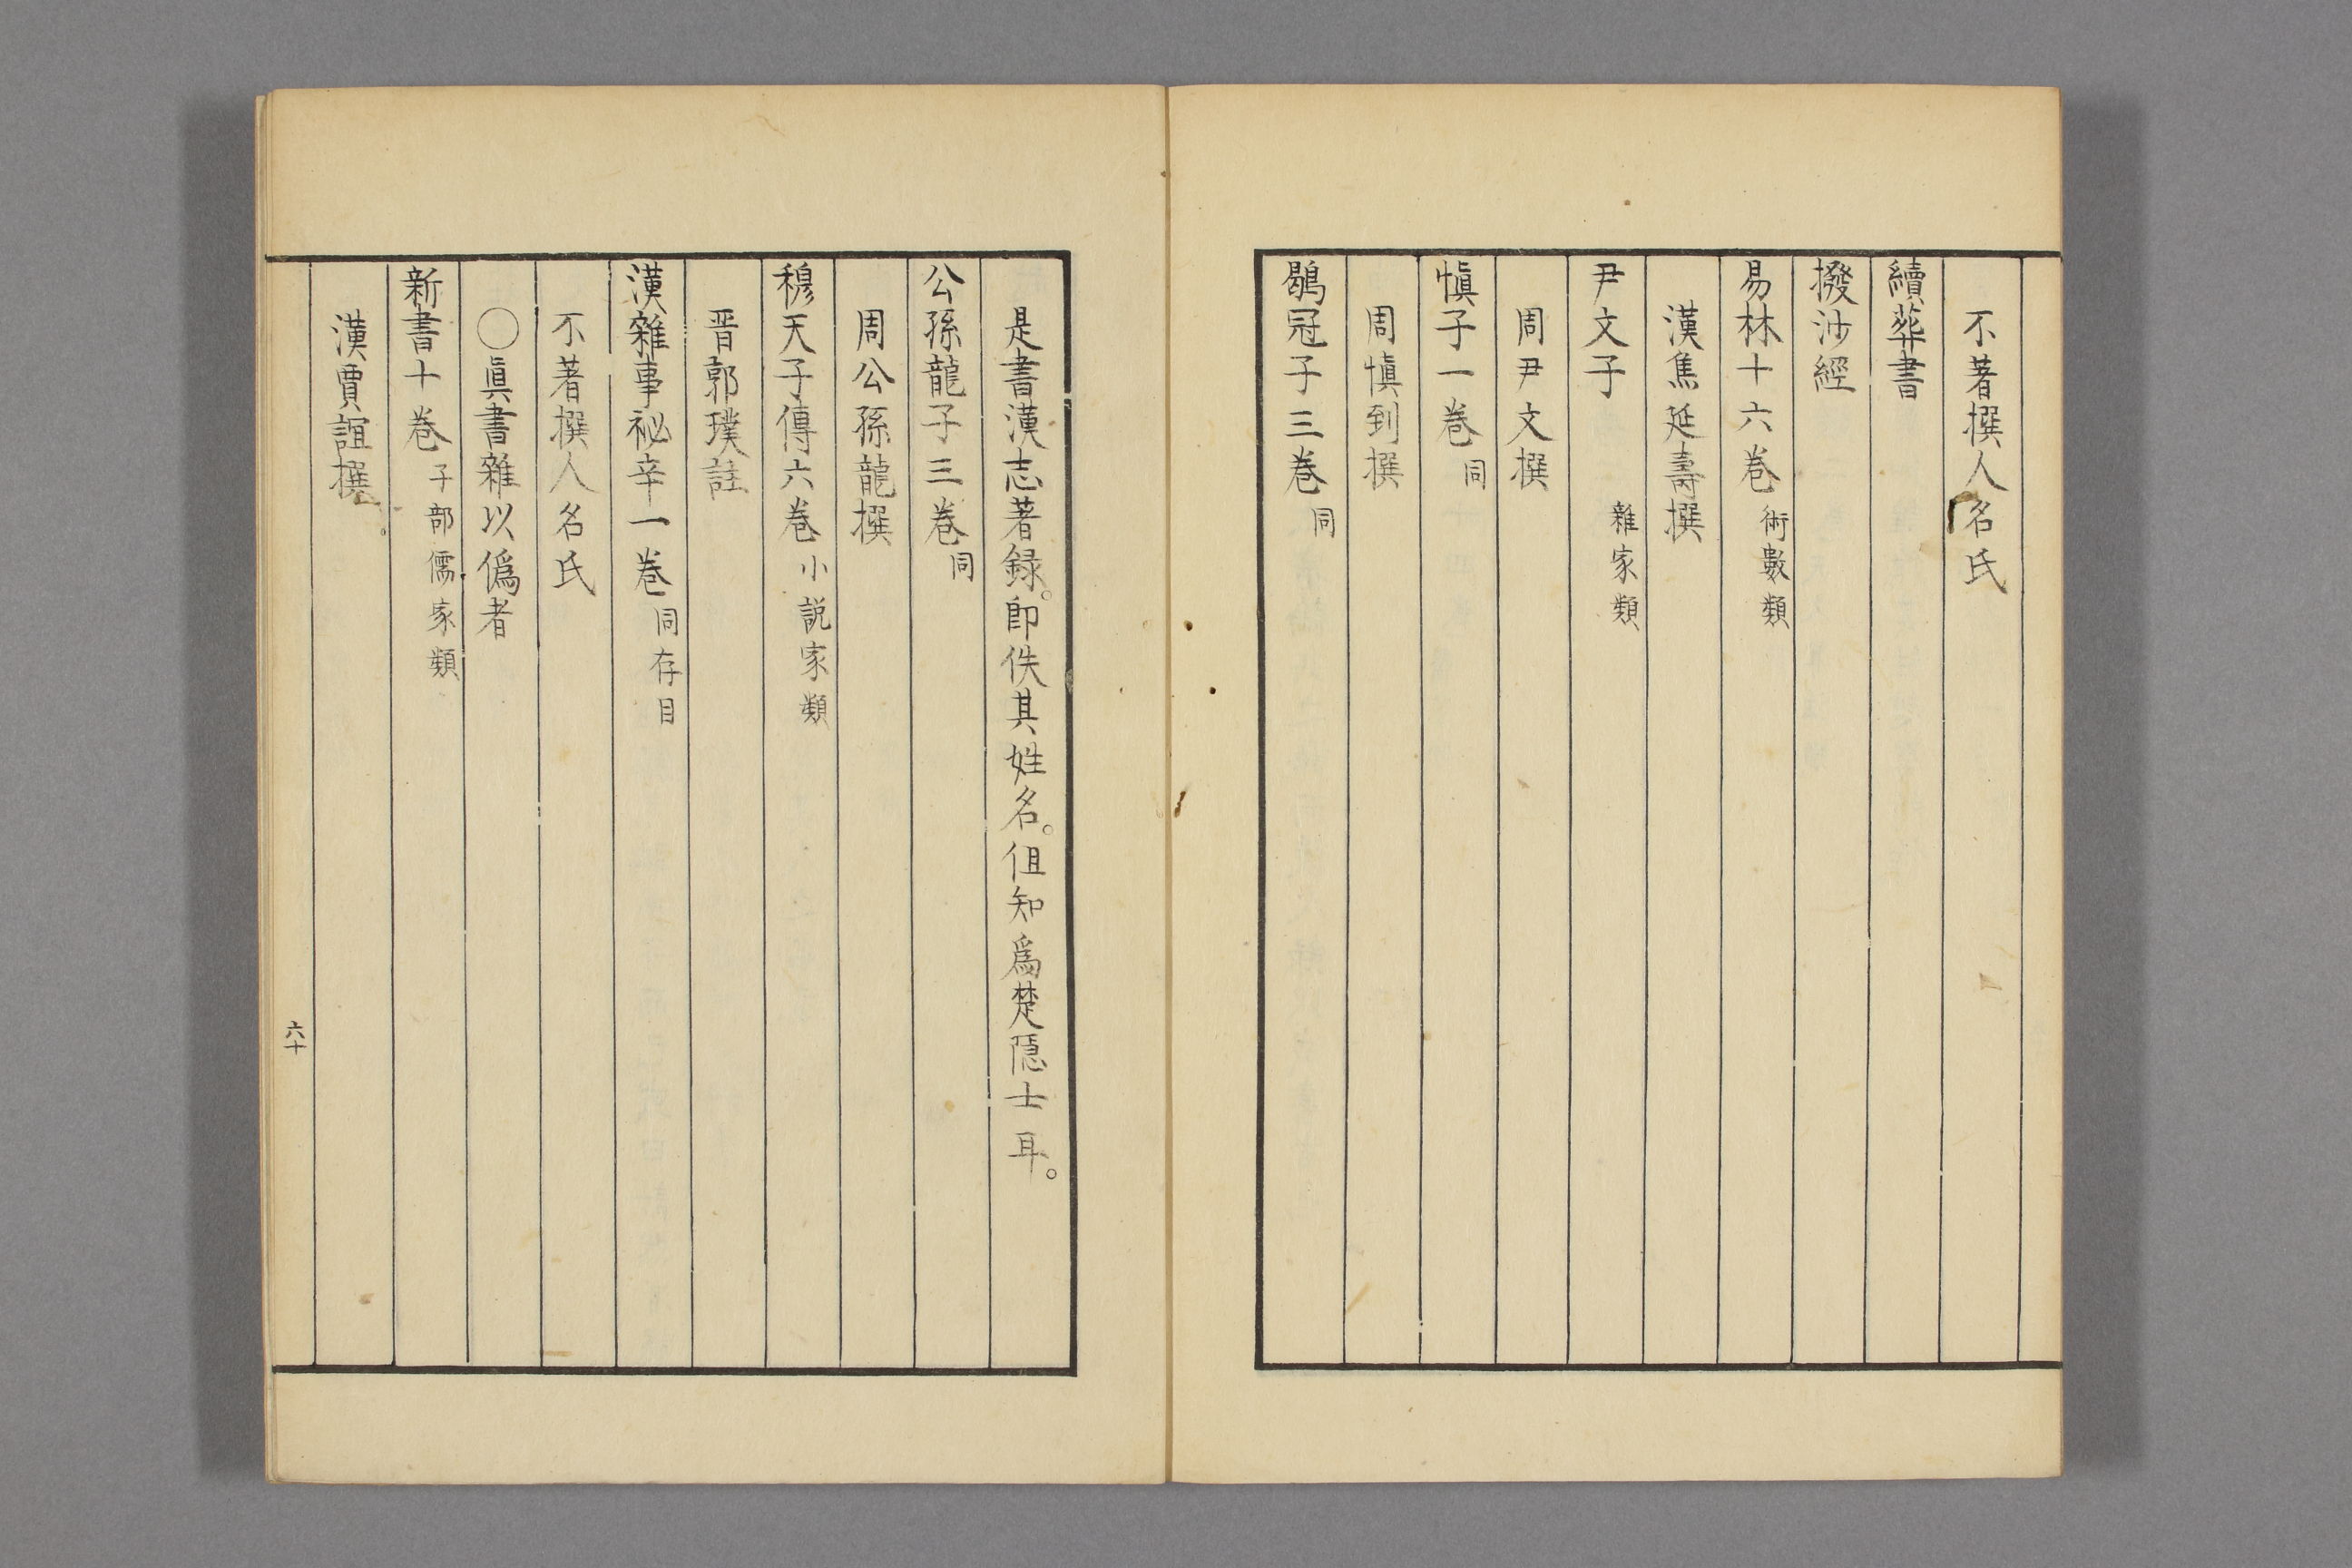 不著撰人名氏
續葬書
撥沙經
易林十六巻 術數類
漢焦延壽撰
尹文子 雜家類
周尹文撰
慎子一巻 同
周慎到撰
鶡冠子三巻 同
是書漢志著録。即佚其姓名。但知爲楚隱士耳。
公孫龍子三巻 同
周公孫龍撰
穆天子傳六巻 小説家類
晋郭璞註
漢雜事祕辛一巻 同存目
不著撰人名氏
〇眞書雜以僞者
新書十巻 子部儒家類
漢賈誼撰
六十